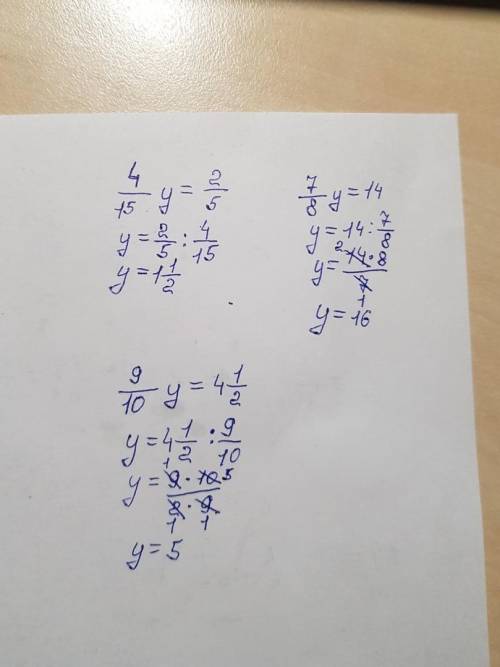 4/15 y = 2/5
y = 2/5 : 4/15
y = 1 1/2
7/8 y = 14
y = 14 : 7/8
y = 2 14·8/7 1
y = 16
9/10 y = 4 1/2
y = 4 1/2 : 9/10
y = 1 9·10 5/2·9 1 1
y = 5